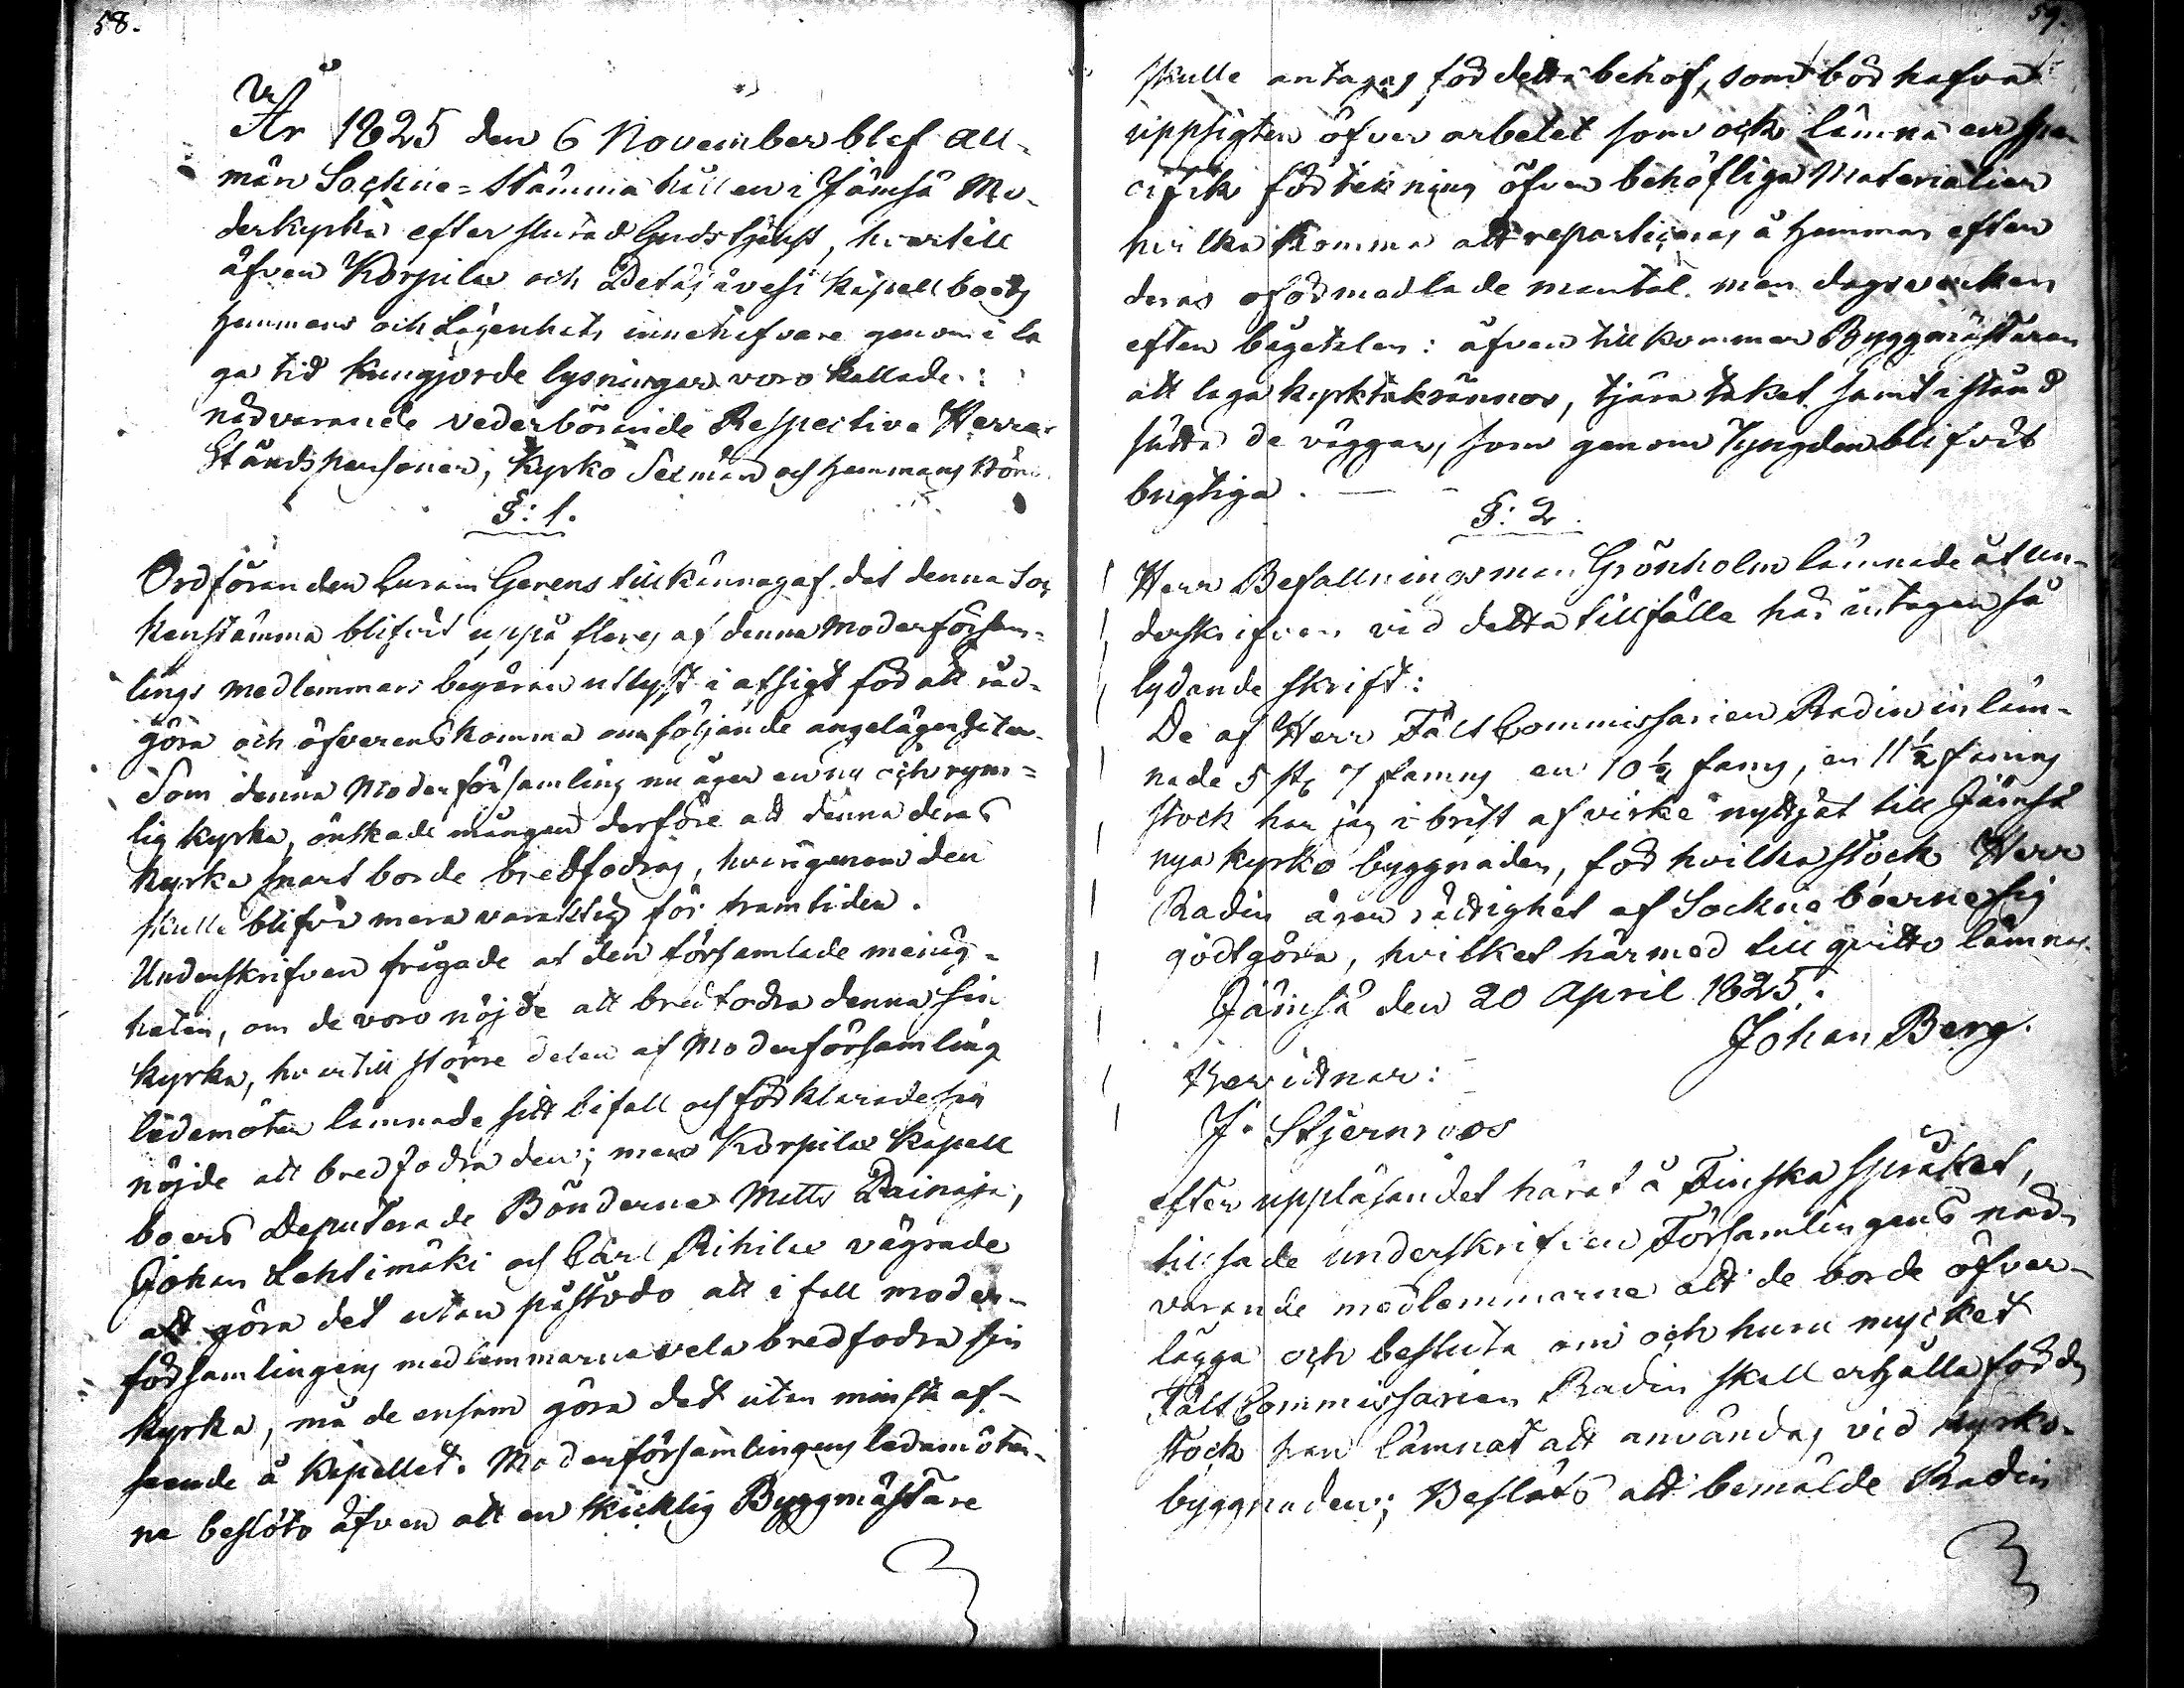 58.
År 1825 den 6 November blef all-
män Sockne-Stämma hållen i Jämsä Mo-
derkyrka efter slutad Gudstjenst, hvartill
äfven Korpilax och Petäjävesi Kapellboers
Hemmans och Lägenhets innehafvare genom i la
ga tid kungjorde lysningar voro kallade:
närvarande vederbörande Respective Herrar
Ståndspersoner, Kyrko Sexmän och Hemmans Bönd.
§: 1.
Ordföranden Curam Gerens tillkännagaf det denna Soc
kenstämma blifvit uppå fleres af denna Moderförsam-
lings medlemmars begäran utlyst i afsigt för att råd-
göra och öfverenskomma om följande angelägenheter.
Som denna Moderförsamling nu äger en ny och rym-
lig kyrka, önskade mången derföre att denna deras
kyrka snart borde bredfodras, hvarigenom den
skulle blifva mera varaktig för framtiden.
Underskrifven frågade af den församlade menig-
heten, om de voro nöjde att bredfodra denna sin
kyrka, hvartill större delen af Moderförsamling
ledamöter lämnade sitt bifall och förklarade sig
nöjde att bredfodra den; men Korpilax Kapell
boers Deputerade Bönderne Matts
Johan Lehtimäki och Carl Rihilax vägrade
att göra det utan påstodo att i fall moder-
församlingens medlemmarna vela bredfodra sin
kyrka, må de ensam göra det utan minsta af-
seende å Kapellet. Moderförsamlingens ledamöter-
na beslöto äfven att en skicklig Byggmästare
59.
skulle antagas för detta behof, som bör hafva
uppsigten öfver arbetet som och lämna en spe-
cifik förtekning öfver behöfliga Materialier
hvilka komma att reparticeras å Hemman efter
deras oförmedlade mantal. men dagsverken
efter bågetalen: äfven tillkommer Byggmästaren
att laga kyrktaksrännor, tjära taket samt istånd
sätta de väggar, som genom Tyngden blifvit
bugtiga.
§: 2.
Herr Befallningsman Grönholm lämnade åt Un-
derskrifven vid detta tillfälle här intagen så
lydande skrift:
De af Herr Fält Commissarien Radin inläm-
nade 5 st 7 famns en 10 1/2 fams, en 11 1/2 famns
stock har jag i brist af virke nyttjat till Jämsä
nya kyrko byggnaden, för hvilka stock Herr
Radin äger rättighet af Sockneboerne sig
godtgöra, hvilket härmed till qvitto lämnas.
Jämsä den 20 April 1825.
Johan Berg.
Bevittnar:
J. Stjernvoos
efter uppläsandet häraf å Finska språket,
tillsade underskrifven Församlingens när-
varande medlemmarne att de borde öfver-
lägga och besluta om och huru mycket
Fält Commissarien Radin skall erhålla för de
stock han lämnat att användas vid kyrko-
byggnaden; Beslöts att bemälde Radin